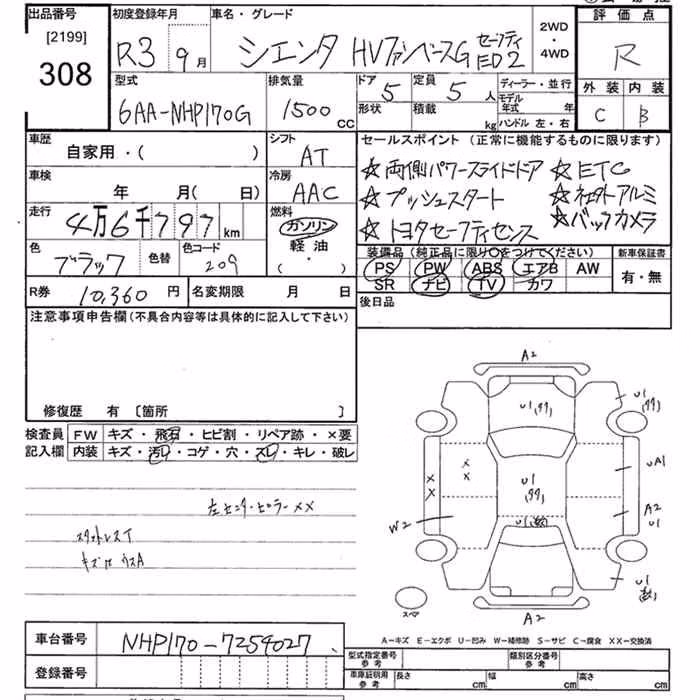 出品番号 初度登録年月 車名・グレード 2WD・4WD 評価点
[2199]
308 R3 9月 シエンタ HVファンベースG セーフティED2 R
型式 排気量 ドア 定員 ディーラー・並行 外装 内装
6AA-NHP170G 1500cc 5 5人 モデル年式 年 C B
形状 積載 kg ハンドル 左・右
車歴 シフト セールスポイント(正常に機能するものに限ります)
自家用・( ) AT ☆両側パワースライドドア ☆ETC
車検 冷房 ☆プッシュスタート ☆社外アルミ
年 月( 日) AAC ☆トヨタセーフティセンス ☆バックカメラ
走行 燃料
4万6千797km ガソリン
色 色替 色コード 軽油
ブラック 209 ( ・ )
装備品(純正品に限り○をつけてください) 新車保証書
PS PW ABS エアB AW 有・無
SR ナビ TV カワ
R券 10,360円 名変期限 月 日 後日品
注意事項申告欄(不具合内容等は具体的に記入して下さい)
修復歴 有 [箇所 ]
検査員 FW キズ・飛石・ヒビ割・リペア跡・×要
記入欄 内装 キズ・汚レ・コゲ・穴・スレ・キレ・破レ
左センターピラー××
スタットレスT
キズ凹 サスA
A2
U1 (99)
U1 (99)
××
××
U1 (99)
UA1
A2
U1
W2
U1(数)
U1
(数)
スペア
A2
A-キズ E-エクボ U-凹み W-補修跡 S-サビ C-腐食 XX-交換済
車台番号 NHP170-7254027
登録番号
型式指定番号 参考 類別区分番号 参考
車庫証明用 参考 長さ cm 幅 cm 高さ cm